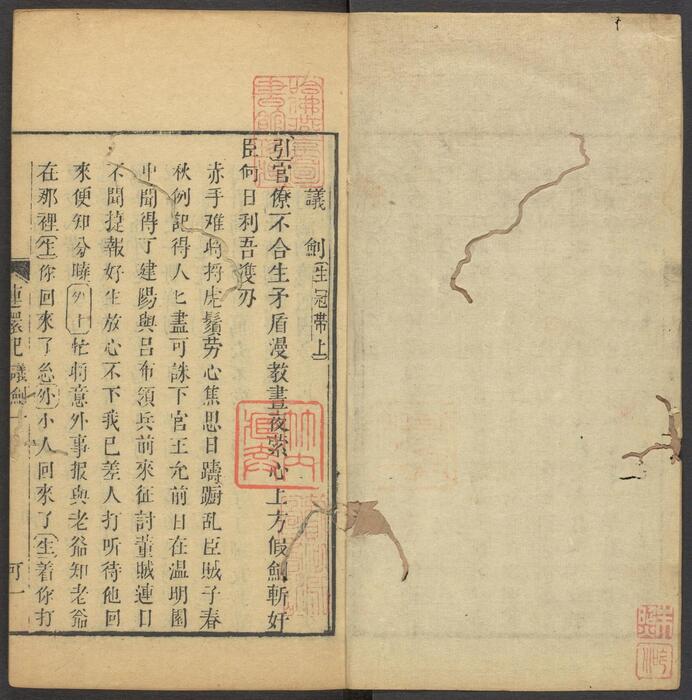 議劍(生冠帶上)
引官僚不合生矛盾漫教晝夜縈心上方假劍斬奸
臣何日利吾獲刃
赤手难將捋虎鬚劳心焦思日躊蹰乱臣賊子春
秋例記得人匕盡可誅下官王允前日在温明園
中聞得丁建陽與吕布領兵前來征討董賊連日
不聞捷報好生放心不下我已差人打听待他回
來便知分曉(外上)忙將意外事报與老爺知老爺
在那裡(生)你回來了么(外)小人回來了(生)着你打
連環記 議劍 一
可一